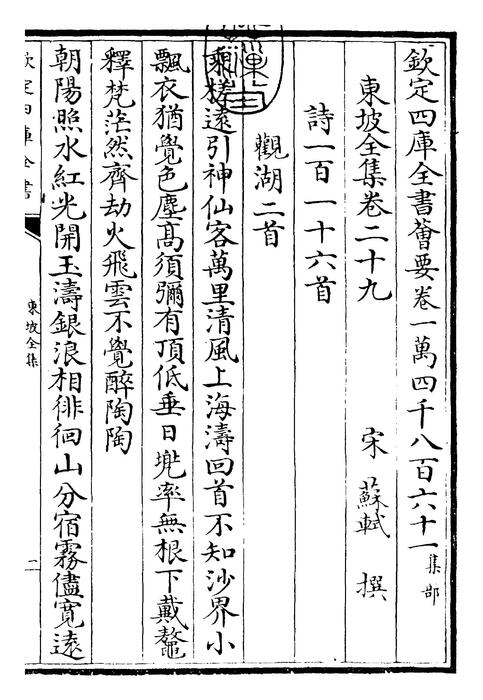 欽定四庫全書薈要卷一萬四千八百六十一集部
東坡全集卷二十九
宋 蘇軾 撰
詩一百一十六首
觀湖二首
乘槎逺引神仙客萬里清風上海濤回首不知沙界小
飄衣猶覺色塵髙須彌有頂低垂日兠率無根下戴鼇
釋梵茫然齊劫火飛雲不覺醉陶陶
朝陽照水紅光開玉濤銀浪相徘徊山分宿霧儘寛逺
欽定四庫全書
東坡全集